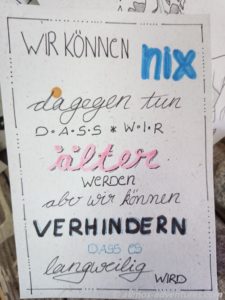 WIR KÖNNEN nix
dagegen tun
D·A·S·S * W·I·R
älter
WERDEN
aber wir können
VERHINDERN
DASS ES
langweilig WIRD